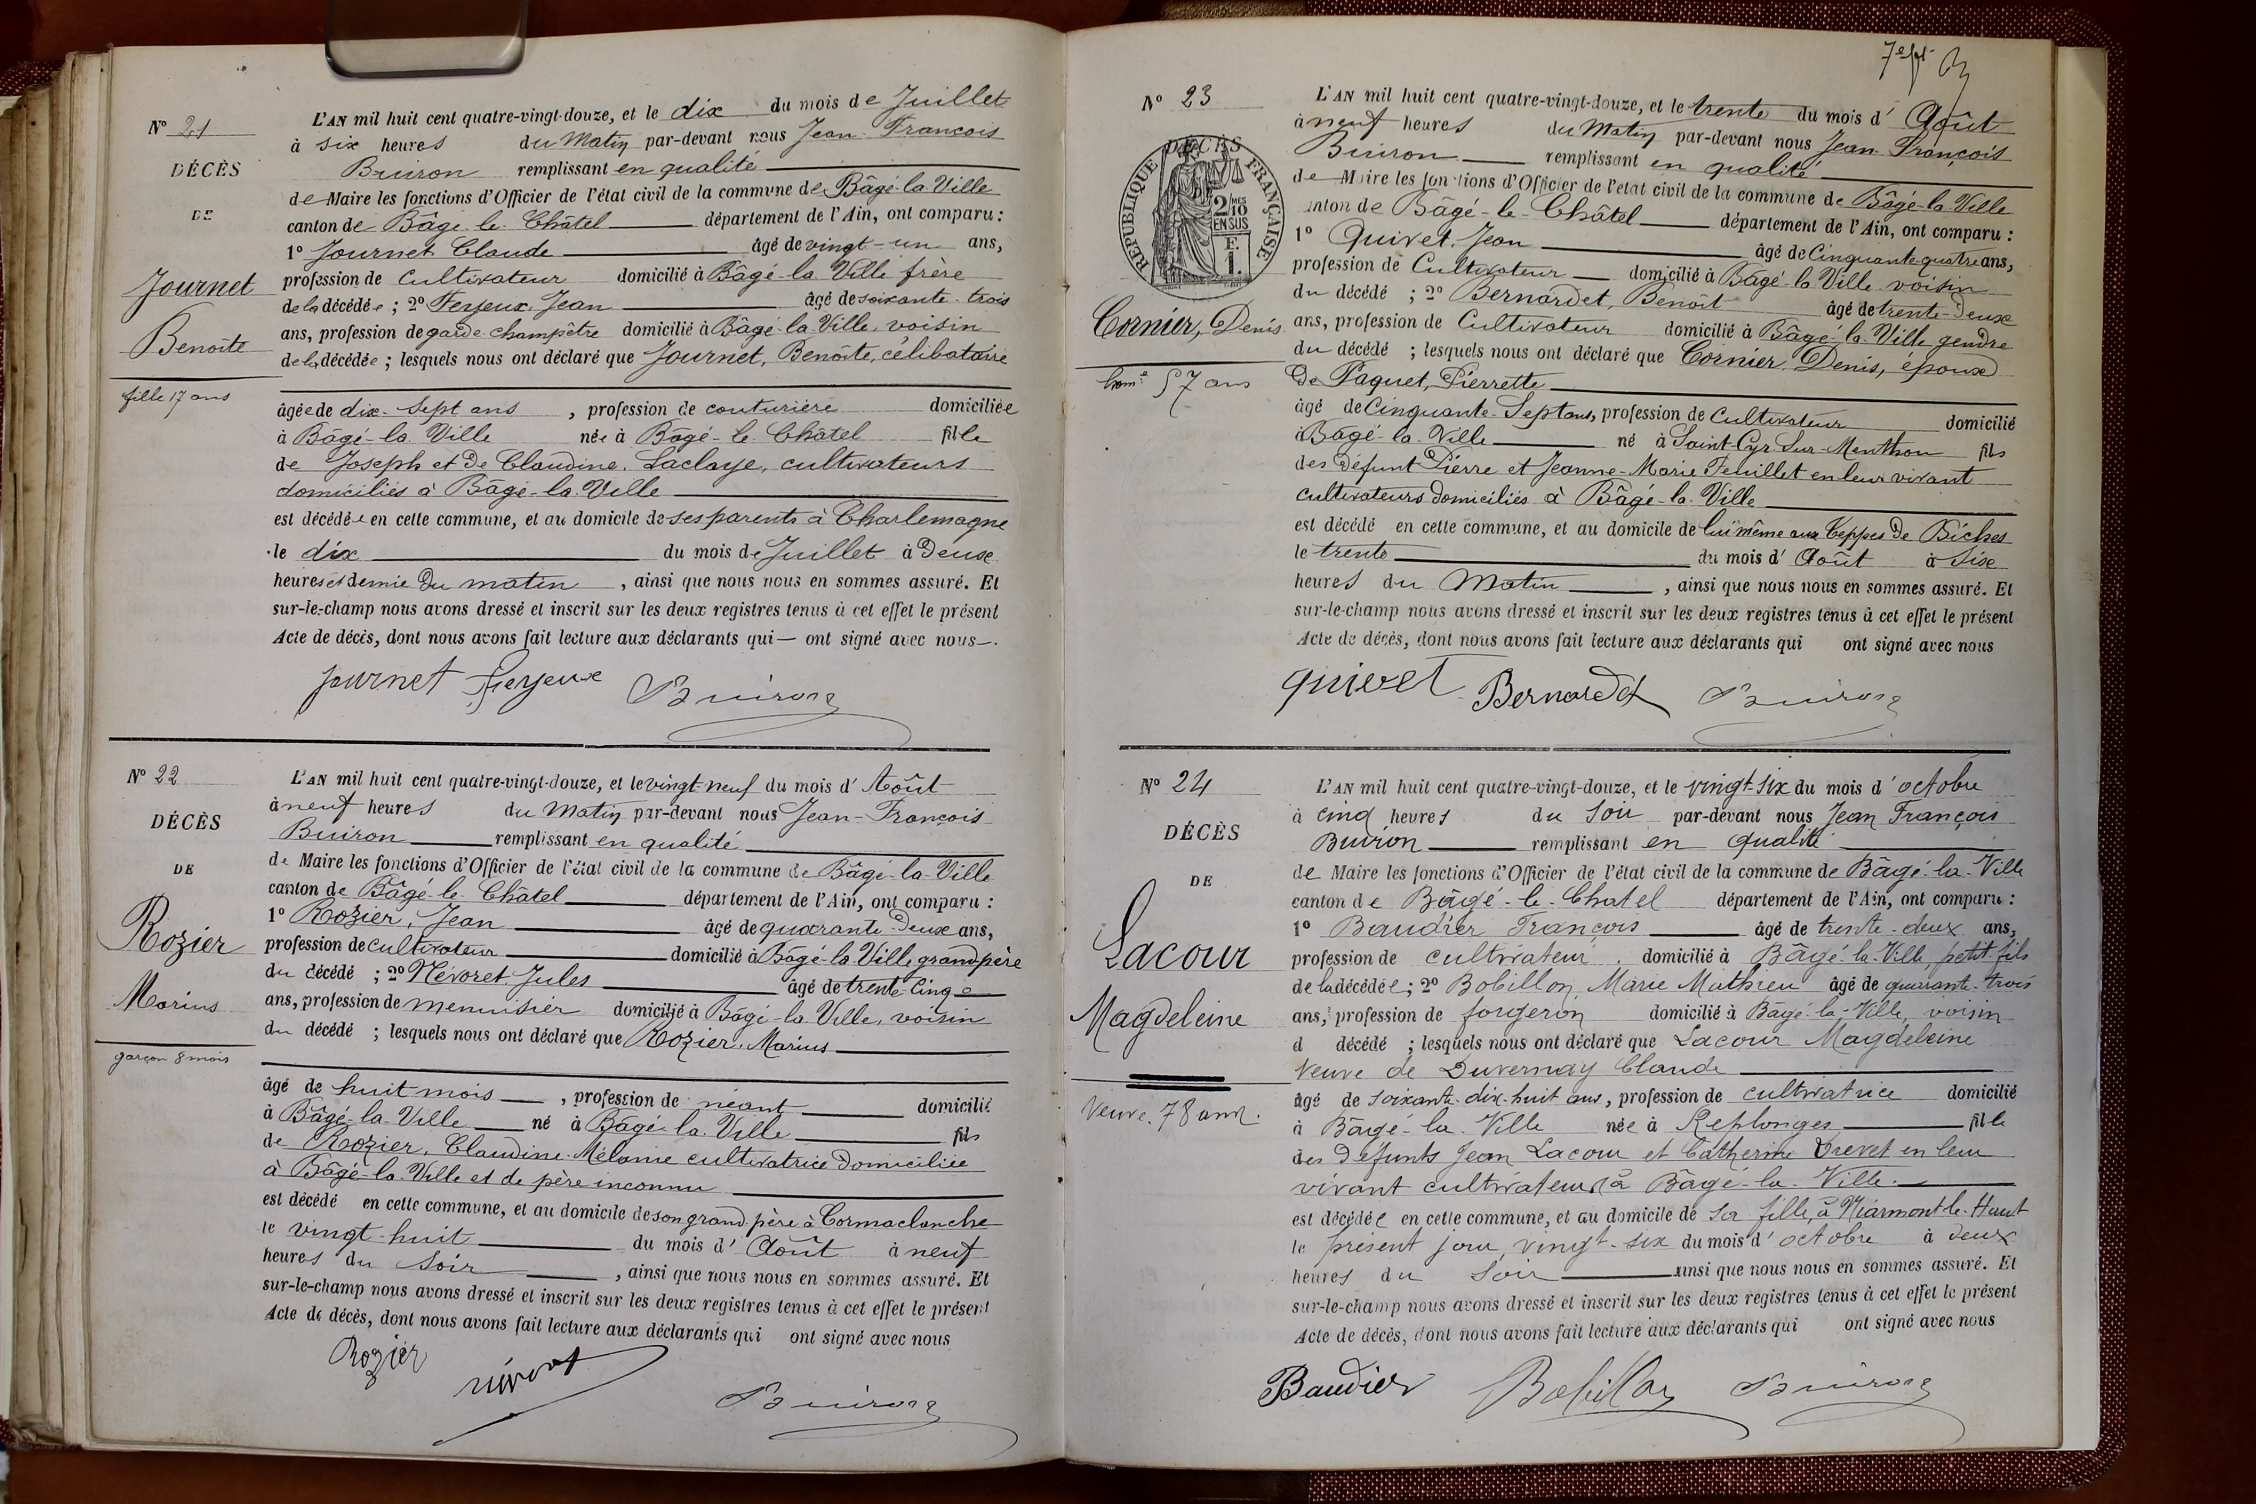 N° 21
DÉCÈS
DE
Journet
Benoite
fille 17 ans
L'AN mil huit cent quatre-vingt-douze, et le dix du mois de Juillet
à six heures du Matin par-devant nous Jean François
Buiron remplissant en qualité
de Maire les fonctions d'Officier de l'état civil de la commune de Bâgé-la-Ville
canton de Bâgé-le-Châtel département de l'Ain, ont comparu :
1° Journet Claude âgé de vingt-un ans,
profession de cultivateur domicilié à Bâgé-la-Ville frère
de la décédée ; 2° Ferjeux Jean âgé de soixante-trois
ans, profession de garde-champêtre domicilié à Bâgé-la-Ville, voisin
de la décédée ; lesquels nous ont déclaré que Journet, Benoîte, célibataire
âgée de dix-sept ans , profession de couturière domiciliée
à Bâgé-la-Ville née à Bâgé-le-Châtel fille
de Joseph et de Claudine Laclaye, cultivateurs
domiciliés à Bâgé-la-Ville
est décédée en cette commune, et au domicile de ses parents à Charlemagne
le dix du mois de Juillet à Deux
heures et demie du matin , ainsi que nous nous en sommes assuré. Et
sur-le-champ nous avons dressé et inscrit sur les deux registres tenus à cet effet le présent
Acte de décès, dont nous avons fait lecture aux déclarants qui — ont signé avec nous —.
Journet Ferjeux Buiron
N° 22
DÉCÈS
DE
Rozier
Marius
garçon 8 mois
L'AN mil huit cent quatre-vingt-douze, et le vingt-neuf du mois d' Août
à neuf heures du Matin par-devant nous Jean-François
Buiron remplissant en qualité
de Maire les fonctions d'Officier de l'état civil de la commune de Bâgé-la-Ville
canton de Bâgé-le-Châtel département de l'Ain, ont comparu :
1° Rozier, Jean âgé de quarante-Deux ans,
profession de cultivateur domicilié à Bâgé-la-Ville, grand père
du décédé ; 2° Névoret Jules âgé de trente-Cinq
ans, profession de menuisier domicilié à Bâgé-la-Ville, voisin
du décédé ; lesquels nous ont déclaré que Rozier, Marius
âgé de huit mois , profession de néant domicilié
à Bâgé-la-Ville né à Bâgé-la-Ville fils
de Rozier, Claudine Mélanie cultivatrice Domiciliée
à Bâgé-la-Ville et de père inconnu
est décédé en cette commune, et au domicile de son grand-père à Cormaclanche
le vingt-huit du mois d' Août à neuf
heures du soir , ainsi que nous nous en sommes assuré. Et
sur-le-champ nous avons dressé et inscrit sur les deux registres tenus à cet effet le présent
Acte de décès, dont nous avons fait lecture aux déclarants qui ont signé avec nous
Rozier Buiron
N° 23
RÉPUBLIQUE FRANÇAISE
DÉCÈS
2/10 MES
EN SUS
F.
1.
Cornier, Denis
hom.e 57 ans
L'AN mil huit cent quatre-vingt-douze, et le trente du mois d' Août
à neuf heures du Matin par-devant nous Jean-François
Buiron remplissant en qualité
de Maire les fonctions d'Officier de l'état civil de la commune de Bâgé-la-Ville
canton de Bâgé-le-Châtel département de l'Ain, ont comparu :
1° Quivet, Jean âgé de Cinquante quatre ans,
profession de Cultivateur domicilié à Bâgé-la-Ville voisin
du décédé ; 2° Bernardet, Benoît âgé de trente-Deux
ans, profession de Cultivateur domicilié à Bâgé-la-Ville gendre
du décédé ; lesquels nous ont déclaré que Cornier Denis, époux
De Paquet, Pierrette
âgé de Cinquante-Sept ans, profession de Cultivateur domicilié
à Bâgé-la-Ville né à Saint-Cyr-Sur-Menthon fils
des Défunt Pierre et Jeanne-Marie Feuillet en leur vivant
cultivateurs Domiciliés à Bâgé-la-Ville
est décédé en cette commune, et au domicile de lui même aux Teppes De Biches
le trente du mois d' Août à Six
heures du Matin , ainsi que nous nous en sommes assuré. Et
sur-le-champ nous avons dressé et inscrit sur les deux registres tenus à cet effet le présent
Acte de décès, dont nous avons fait lecture aux déclarants qui ont signé avec nous
quivet Bernardet Buiron
N° 24
DÉCÈS
DE
Lacour
Magdeleine
Veuve 78 ans.
L'AN mil huit cent quatre-vingt-douze, et le vingt-six du mois d' octobre
à cinq heures du Soir par-devant nous Jean François
Buiron remplissant en qualité
de Maire les fonctions d'Officier de l'état civil de la commune de Bâgé-la-Ville
canton de Bâgé-le-Chatel département de l'Ain, ont comparu :
1° Baudier François âgé de trente-deux ans,
profession de cultivateur domicilié à Bâgé-la-Ville, petit-fils
de la décédée ; 2° Bobillon, Marie Mathieu âgé de quarante-trois
ans, profession de forgeron domicilié à Bâgé-la-Ville, voisin
d décédé ; lesquels nous ont déclaré que Lacour Magdeleine
Veuve de Duvernay Claude
âgé de soixante-dix-huit ans, profession de cultivatrice domicilié
à Bâgé-la-Ville née à Replonges fille
des Défunts Jean Lacour et Catherine Drevet en leur
vivant cultivateurs à Bâgé-la-Ville.
est décédée en cette commune, et au domicile de sa fille, à Niarmont-le-Haut
le présent jour, vingt-six du mois d' octobre à deux
heures du Soir ainsi que nous nous en sommes assuré. Et
sur-le-champ nous avons dressé et inscrit sur les deux registres tenus à cet effet le présent
Acte de décès, dont nous avons fait lecture aux déclarants qui ont signé avec nous
Baudier Bobillon Buiron